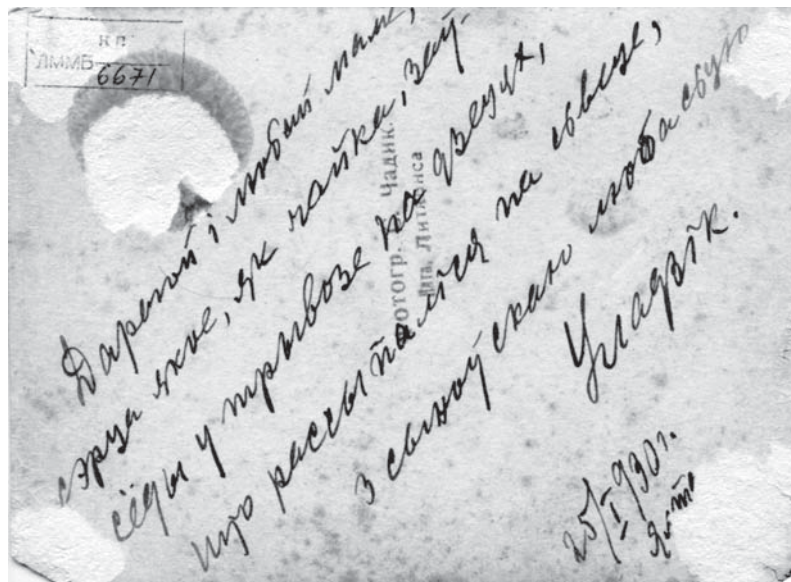 КП
ЛММБ 6671
Дарагой і любый маме,
сэрца якое, як чайка, заў-
сёды у трывозе па дзецях,
што рассыпаліся па сьвеце,
з сыноўскаю любасьцю
Уладзік.
25/I 1930 г.
Ялта
Фотогр. Чадик.
Литкенса